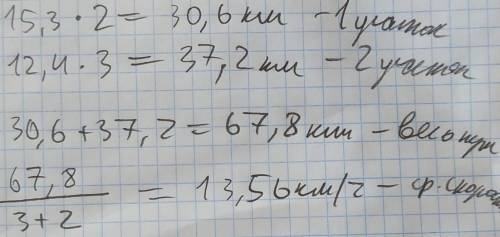 15,3 · 2 = 30,6 км - 1 участок
12,4 · 3 = 37,2 км - 2 участок
30,6 + 37,2 = 67,8 км - весь
67,8
3+2 = 13,56 км/ч - ср. скорос